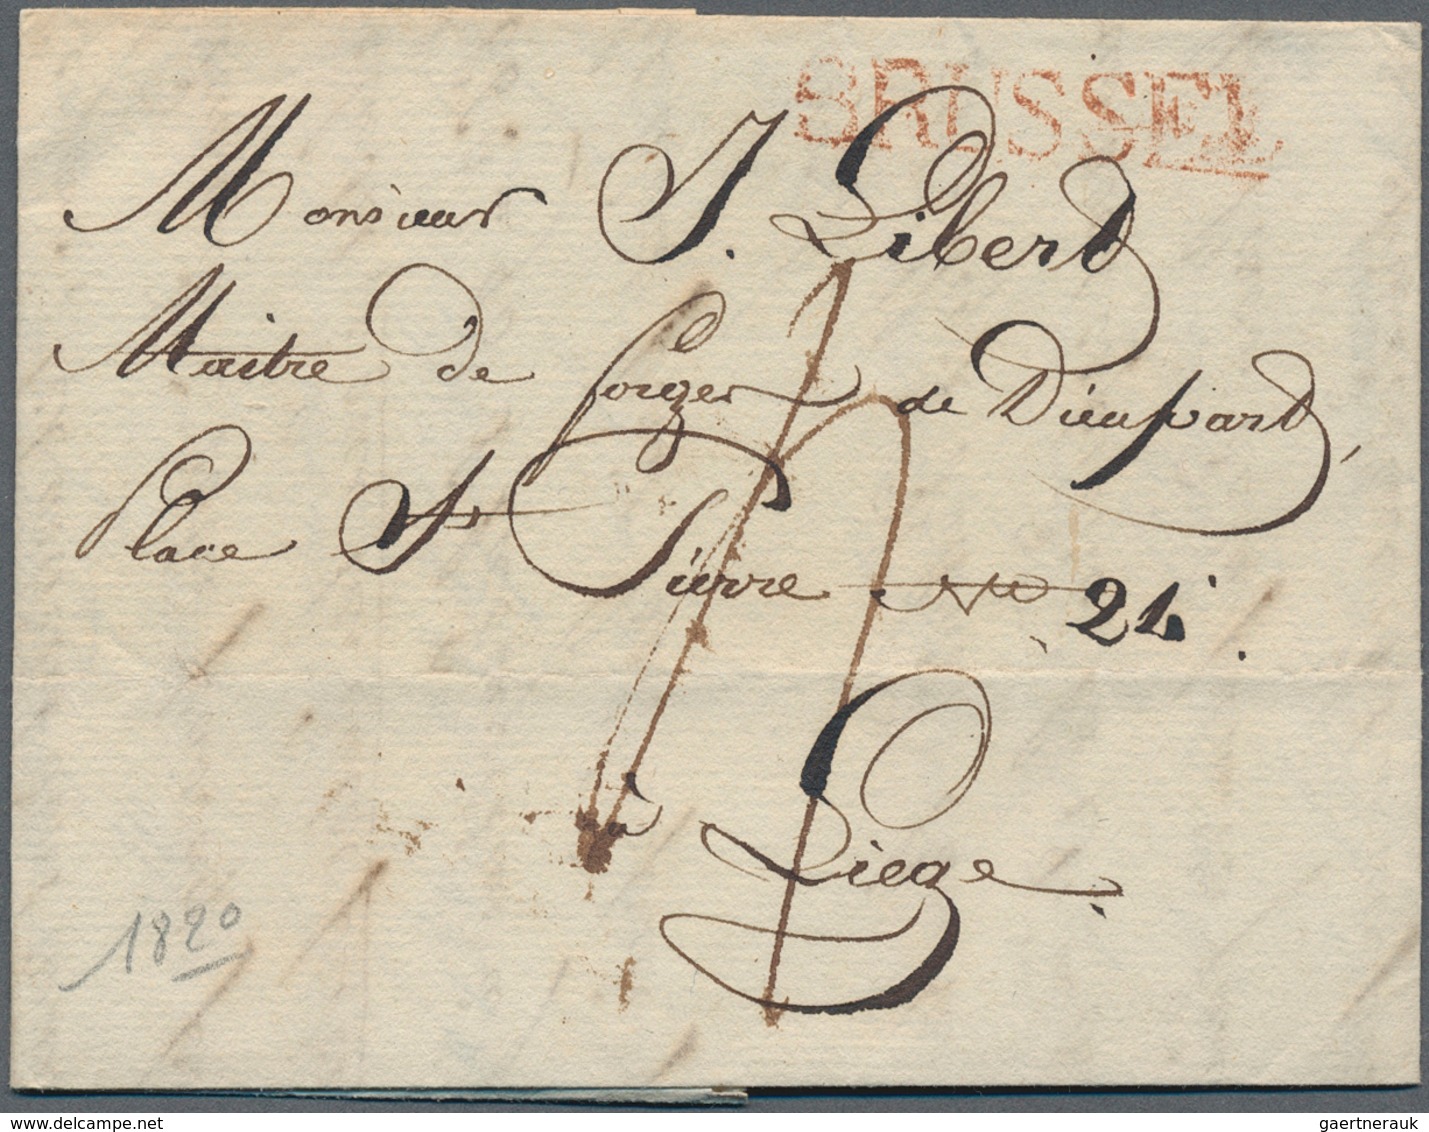 BRUSSEL
Monsieur J. Libert
Maitre de forges de Dieupart,
Place St Pierre No 21.
à
Liege.
1820
www.delcampe.net
gaertnerauk